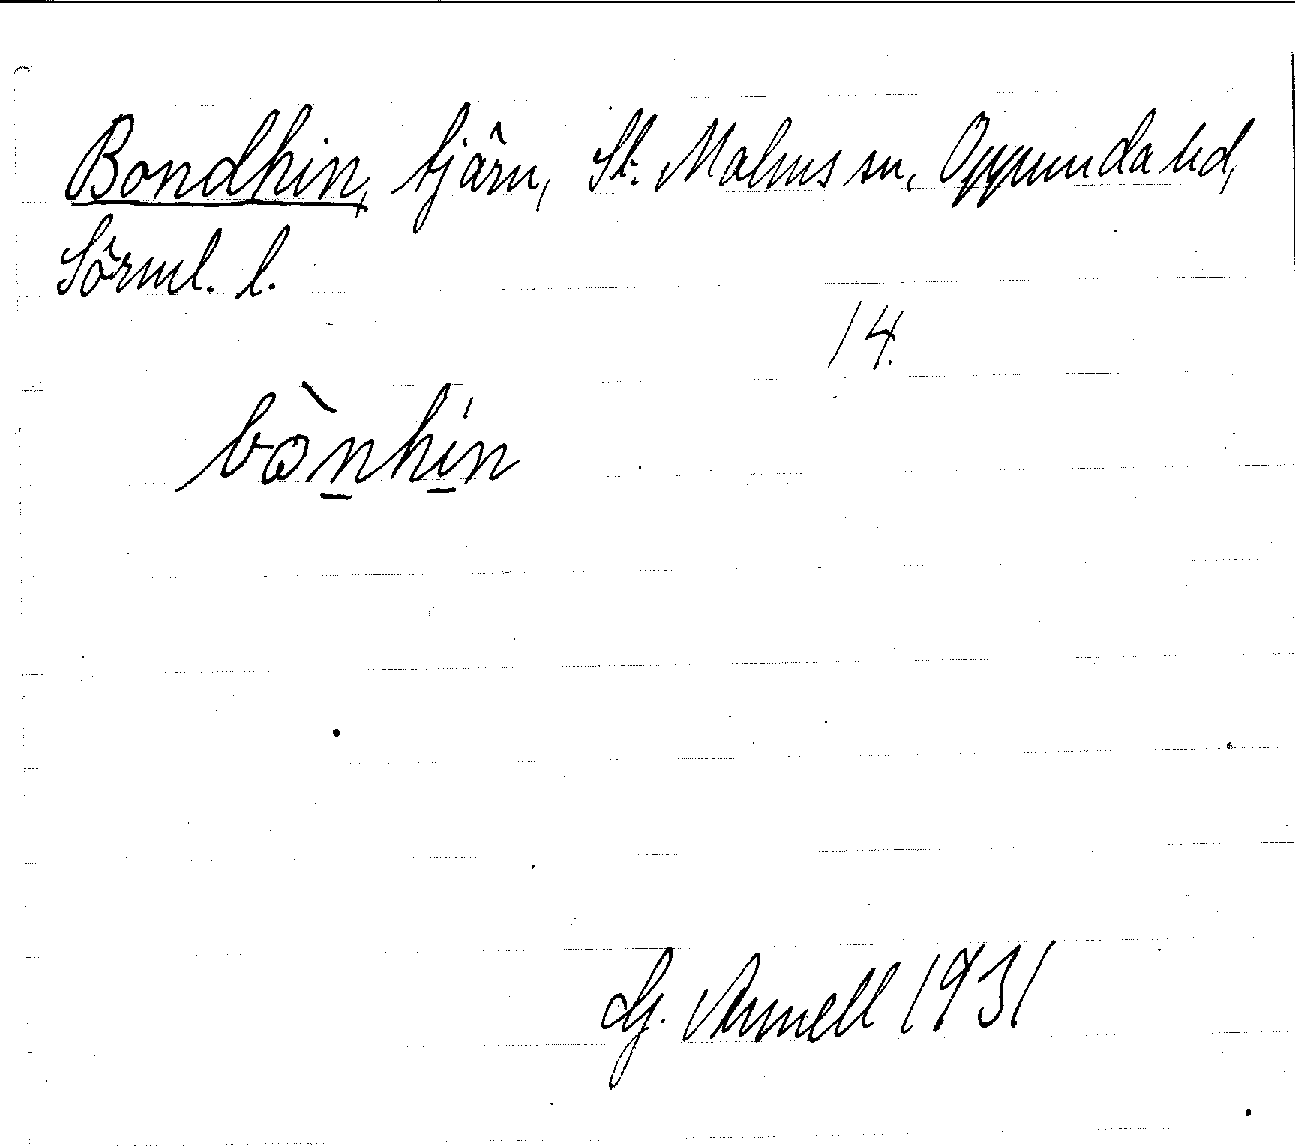 Bondhin, tjärn, St. Malms sn, Oppunda hd,
Sörml. l.
14.
bò̱nhi̱n
G. Armell 1931